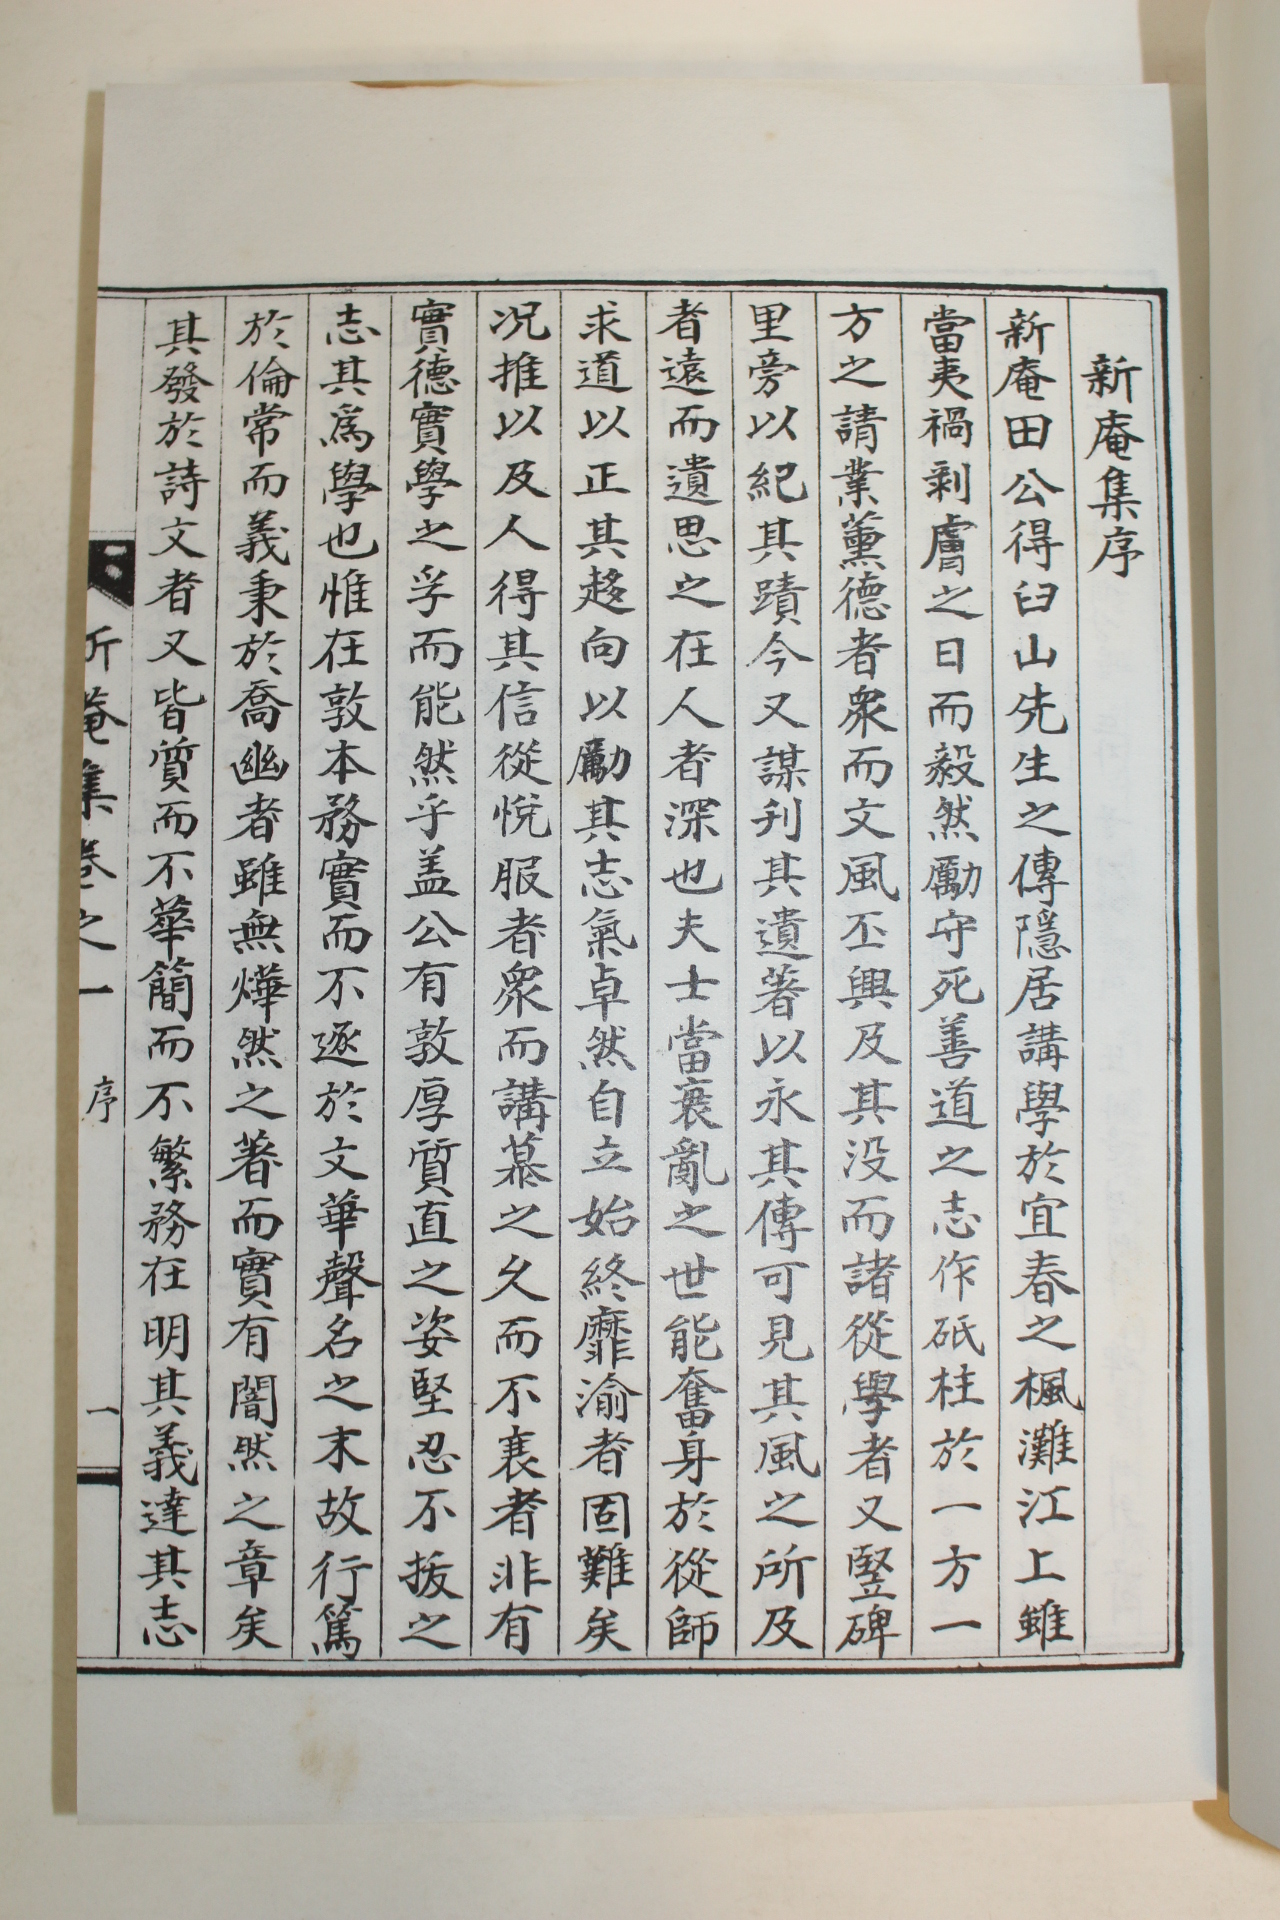 新庵集序
新庵田公得臼山先生之傳隱居講學於宜春之楓灘江上雖
當夷禍剥膚之日而毅然勵守死善道之志作砥柱於一方一
方之請業薰德者衆而文風丕興及其没而諸從學者又竪碑
里旁以紀其蹟今又謀刋其遺著以永其傳可見其風之所及
者遠而遺思之在人者深也夫士當衰亂之世能奮身於從師
求道以正其趍向以勵其志氣卓然自立始終靡渝者固難矣
况推以及人得其信從悅服者衆而講慕之久而不衰者非有
實德實學之孚而能然乎盖公有敦厚質直之姿堅忍不拔之
志其爲學也惟在敦本務實而不逐於文華聲名之末故行篤
於倫常而義秉於喬幽者雖無燁然之著而實有闇然之章矣
其發於詩文者又皆質而不華簡而不繁務在明其義達其志
新菴集卷之一
序
一